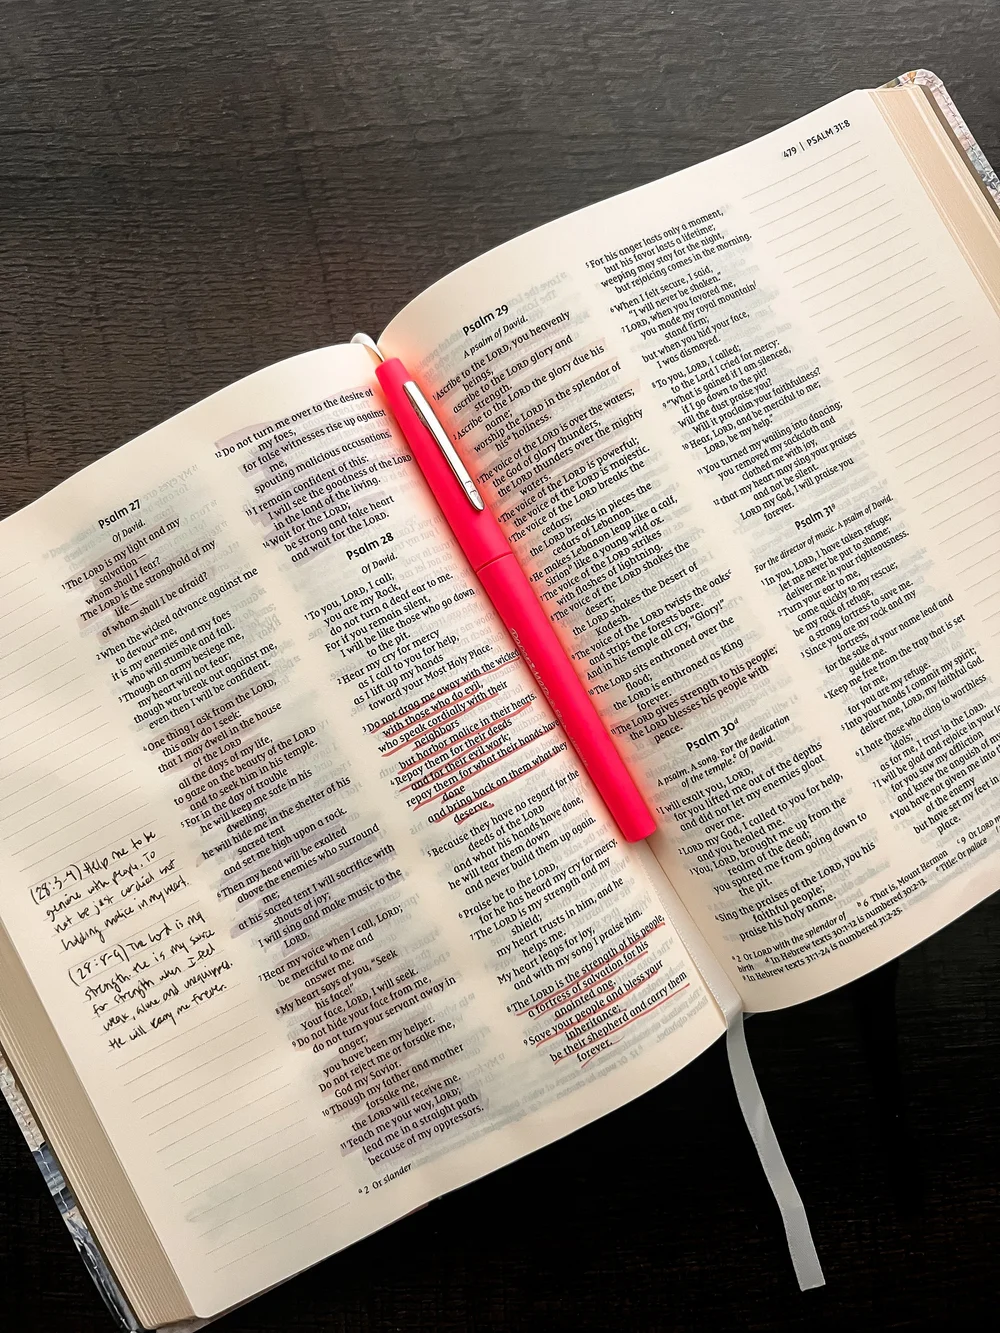 (28:3-4) Help me to be
genuine with people. To
not be just cordial but
helping malice in my heart.
(28:8-9) The Lord is my
strength. He is my source
for strength when I feel
weak, alone and unequipped.
He will carry me forever.
Psalm 27
Of David.
1 The LORD is my light and my
salvation—
whom shall I fear?
The LORD is the stronghold of my
life—
of whom shall I be afraid?
2 When the wicked advance against me
to devour a me,
it is my enemies and my foes
who will stumble and fall.
3 Though an army besiege me,
my heart will not fear;
though war break out against me,
even then I will be confident.
4 One thing I ask from the LORD,
this only do I seek:
that I may dwell in the house
of the LORD
all the days of my life,
to gaze on the beauty of the LORD
and to seek him in his temple.
5 For in the day of trouble
he will keep me safe in his
dwelling;
he will hide me in the shelter of his
sacred tent
and set me high upon a rock.
6 Then my head will be exalted
above the enemies who surround
me;
at his sacred tent I will sacrifice with
shouts of joy;
I will sing and make music to the
LORD.
7 Hear my voice when I call, LORD;
be merciful to me and
answer me.
8 My heart says of you, “Seek
his face!”
Your face, LORD, I will seek.
9 Do not hide your face from me,
do not turn your servant away in
anger;
you have been my helper.
Do not reject me or forsake me,
God my Savior.
10 Though my father and mother
forsake me,
the LORD will receive me.
11 Teach me your way, LORD;
lead me in a straight path
because of my oppressors.
a 2 Or slander
12 Do not turn me over to the desire of
my foes,
for false witnesses rise up against
me,
spouting malicious accusations.
13 I remain confident of this:
I will see the goodness of the LORD
in the land of the living.
14 Wait for the LORD;
be strong and take heart
and wait for the LORD.
Psalm 28
Of David.
1 To you, LORD, I call;
you are my Rock,
do not turn a deaf ear to me.
For if you remain silent,
I will be like those who go down
to the pit.
2 Hear my cry for mercy
as I call to you for help,
as I lift up my hands
toward your Most Holy Place.
3 Do not drag me away with the wicked,
with those who do evil,
who speak cordially with their
neighbors
but harbor malice in their hearts.
4 Repay them for their deeds
and for their evil work;
repay them for what their hands have
done
and bring back on them what they
deserve.
5 Because they have no regard for the
deeds of the LORD
and what his hands have done,
he will tear them down
and never build them up again.
6 Praise be to the LORD,
for he has heard my cry for mercy.
7 The LORD is my strength and my
shield;
my heart trusts in him, and he
helps me.
My heart leaps for joy,
and with my song I praise him.
8 The LORD is the strength of his people,
a fortress of salvation for his
anointed one.
9 Save your people and bless your
inheritance;
be their shepherd and carry them
forever.
Psalm 29
A psalm of David.
1 Ascribe to the LORD, you heavenly
beings,
ascribe to the LORD glory and
strength.
2 Ascribe to the LORD the glory due his
name;
worship the LORD in the splendor of
his a holiness.
3 The voice of the LORD is over the waters;
the God of glory thunders,
the LORD thunders over the mighty
waters.
4 The voice of the LORD is powerful;
the voice of the LORD is majestic.
5 The voice of the LORD breaks the
cedars;
the LORD breaks in pieces the
cedars of Lebanon.
6 He makes Lebanon leap like a calf,
Sirion b like a young wild ox.
7 The voice of the LORD strikes
with flashes of lightning.
8 The voice of the LORD shakes the
desert;
the LORD shakes the Desert of
Kadesh.
9 The voice of the LORD twists the oaks c
and strips the forests bare.
And in his temple all cry, “Glory!”
10 The LORD sits enthroned over the
flood;
the LORD is enthroned as King
forever.
11 The LORD gives strength to his people;
the LORD blesses his people with
peace.
Psalm 30 d
A psalm. A song. For the dedication
of the temple. e Of David.
1 I will exalt you, LORD,
for you lifted me out of the depths
and did not let my enemies gloat
over me.
2 LORD my God, I called to you for help,
and you healed me.
3 You, LORD, brought me up from the
realm of the dead;
you spared me from going down to
the pit.
4 Sing the praises of the LORD, you his
faithful people;
praise his holy name.
479 | PSALM 31:8
5 For his anger lasts only a moment,
but his favor lasts a lifetime;
weeping may stay for the night,
but rejoicing comes in the morning.
6 When I felt secure, I said,
“I will never be shaken.”
7 LORD, when you favored me,
you made my royal mountain f
stand firm;
but when you hid your face,
I was dismayed.
8 To you, LORD, I called;
to the Lord I cried for mercy:
9 “What is gained if I am silenced,
if I go down to the pit?
Will the dust praise you?
Will it proclaim your faithfulness?
10 Hear, LORD, and be merciful to me;
LORD, be my help.”
11 You turned my wailing into dancing;
you removed my sackcloth and
clothed me with joy,
12 that my heart may sing your praises
and not be silent.
LORD my God, I will praise you
forever.
Psalm 31 g
For the director of music. A psalm of David.
1 In you, LORD, I have taken refuge;
let me never be put to shame;
deliver me in your righteousness.
2 Turn your ear to me,
come quickly to my rescue;
be my rock of refuge,
a strong fortress to save me.
3 Since you are my rock and my
fortress,
for the sake of your name lead and
guide me.
4 Keep me free from the trap that is set
for me,
for you are my refuge.
5 Into your hands I commit my spirit;
deliver me, LORD, my faithful God.
6 I hate those who cling to worthless
idols;
as for me, I trust in the LORD.
7 I will be glad and rejoice in your
for you saw my affliction
and knew the anguish of my
8 You have not given me into
of the enemy
but have set my feet in
place.
a 2 Or LORD with the splendor of b 6 That is, Mount Hermon c 9 Or LORD
birth d In Hebrew texts 30:1-12 is numbered 30:2-13. e Title: Or palace
g In Hebrew texts 31:1-24 is numbered 31:2-25.